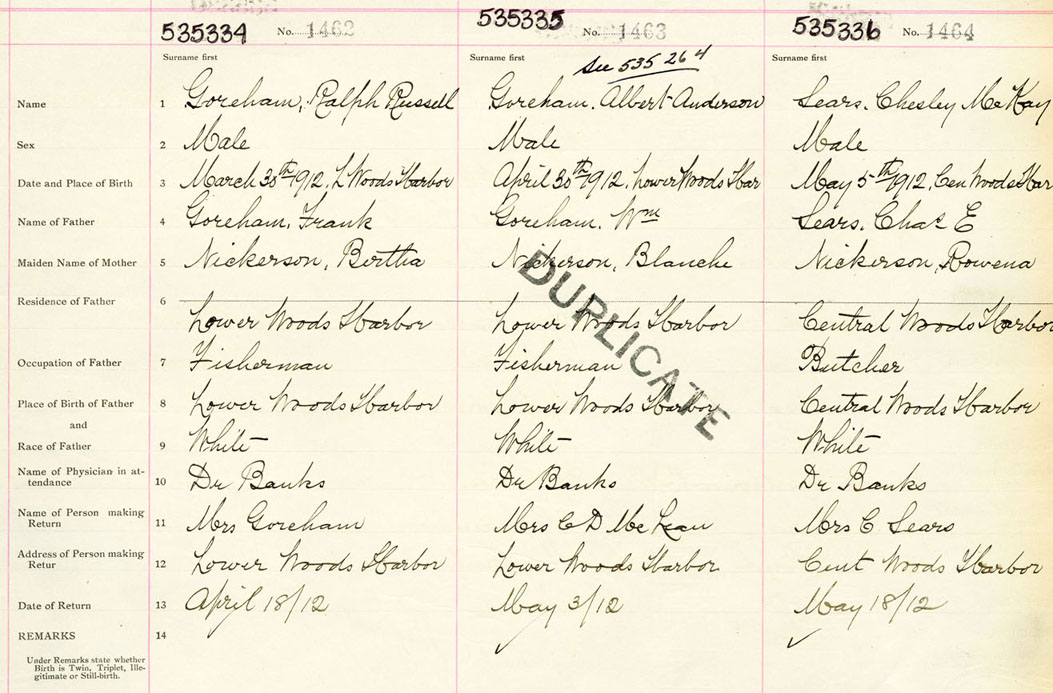 535334 No. 1462 535335 No. 1463 535336 No. 1464
Surname first Surname first Surname first
See 535 264
Name 1 Goreham, Ralph Russell Goreham. Albert Anderson Sears. Chesley McKay
Sex 2 Male Male Male
Date and Place of Birth 3 March 30th 1912, L Woods Harbor April 30th 1912. Lower Woods Har May 5th 1912, Cen Woods Har
Name of Father 4 Goreham, Frank Goreham. Wm Sears. Chas E
Maiden Name of Mother 5 Nickerson, Bertha Nickerson, Blanche Nickerson, Rowena
Residence of Father 6
Lower Woods Harbor Lower Woods Harbor Central Woods Harbor
Occupation of Father 7 Fisherman Fisherman Butcher
Place of Birth of Father 8 Lower Woods Harbor Lower Woods Harbor Central Woods Harbor
and
Race of Father 9 White White White
Name of Physician in at-
tendance 10 Dr Banks Dr Banks Dr Banks
Name of Person making
Return 11 Mrs Goreham Mrs C D McLean Mrs C Sears
Address of Person making
Retur 12 Lower Woods Harbor Lower Woods Harbor Cent Woods Harbor
Date of Return 13 April 18/12 May 3/12 May 18/12
REMARKS 14
Under Remarks state whether
Birth is Twin, Triplet, Ille-
gitimate or Still-birth.
DUPLICATE